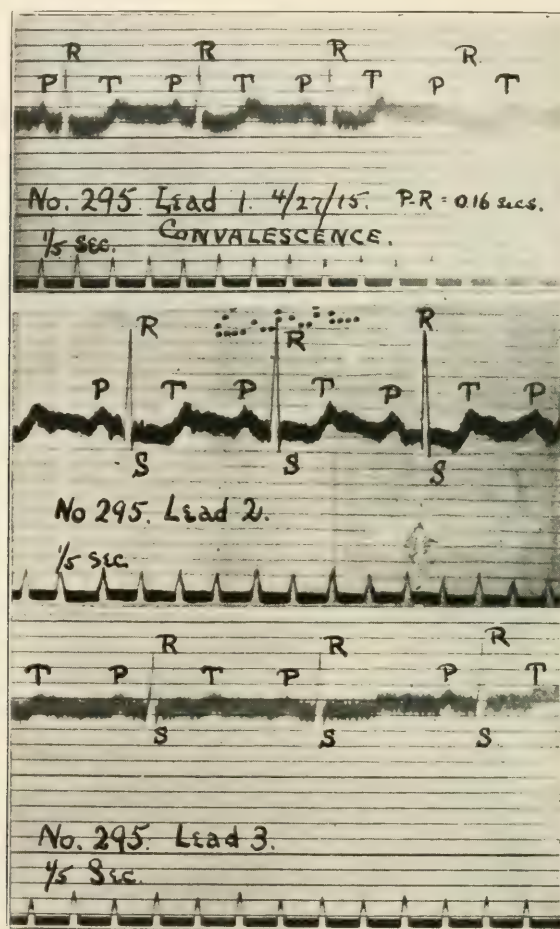 R R R R
P T P T P T P T
No. 295 Lead 1. 4/27/15. P-R = 0.16 secs.
1/5 sec. CONVALESCENCE.
R R R
P T P T P T P
S S S
No 295. Lead 2.
1/5 sec
R R R
T P T P P T
S S S
No. 295. Lead 3.
1/5 Sec.